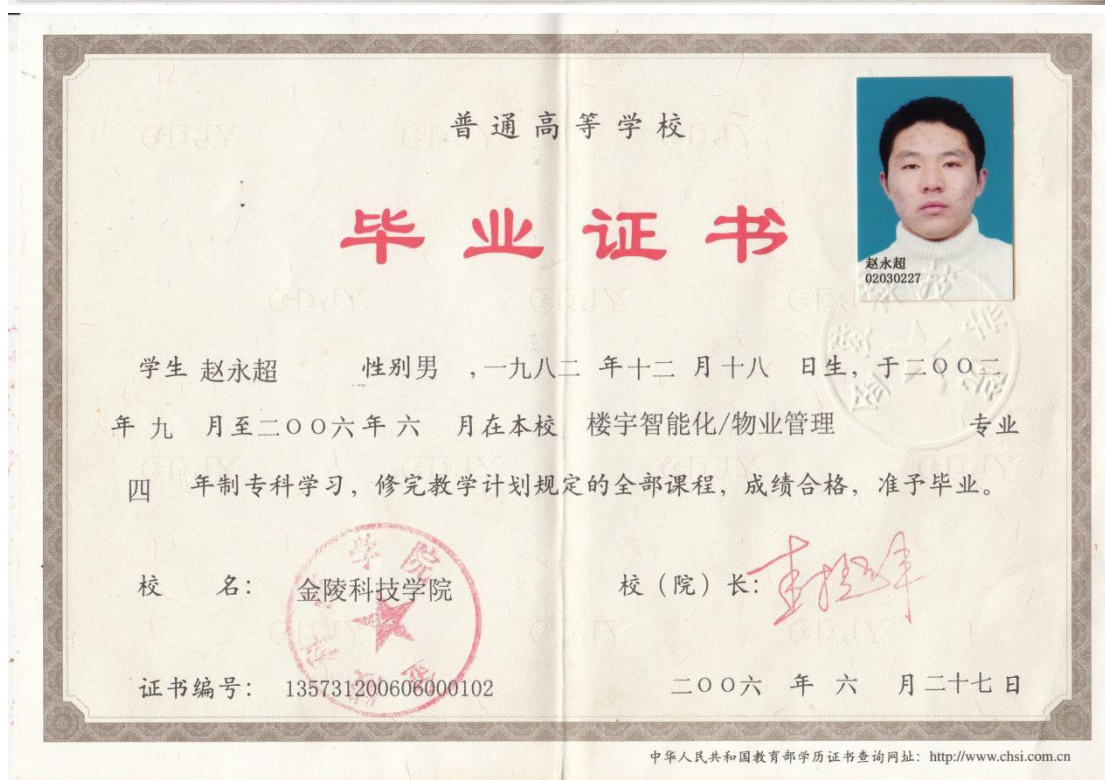 普通高等学校
毕业证书
赵永超
02030227
学生 赵永超 性别男 ,一九八二 年十二 月十八 日生, 于二〇〇二
年 九 月至二〇〇六年 六 月在本校 楼宇智能化/物业管理 专业
四 年制专科学习, 修完教学计划规定的全部课程, 成绩合格, 准予毕业。
校 名: 金陵科技学院 校(院)长:
证书编号: 135731200606000102 二〇〇六 年 六 月二十七日
中华人民共和国教育部学历证书查询网址: http://www.chsi.com.cn